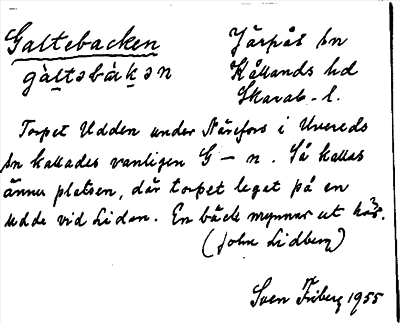 Galtebacken
gàltəbàkən
Järpås sn
Kållands hd
Skarab.-l.
Torpet Udden under Närefors i Uvereds
sn kallades vanligen G–n. Så kallas
ännu platsen, där torpet legat på en
udde vid Lidan. En bäck mynnar ut här.
(John Lidberg)
Sven Friberg 1955